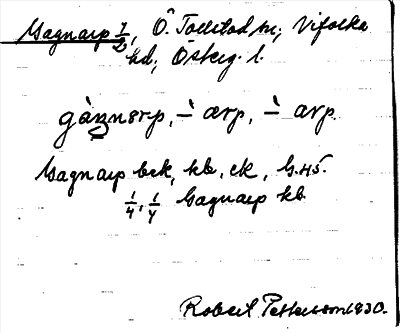 Gagnarp 1/2, Ö. Tollstad sn; Vifolka
hd; Österg. l.
gàŋnərp, -̀ ærp, -̀ arp.
Gagnarp bck, kb, ek, G.45.
1/4, 1/4 Gagnarp kb.
Robert Pettersson 1930.